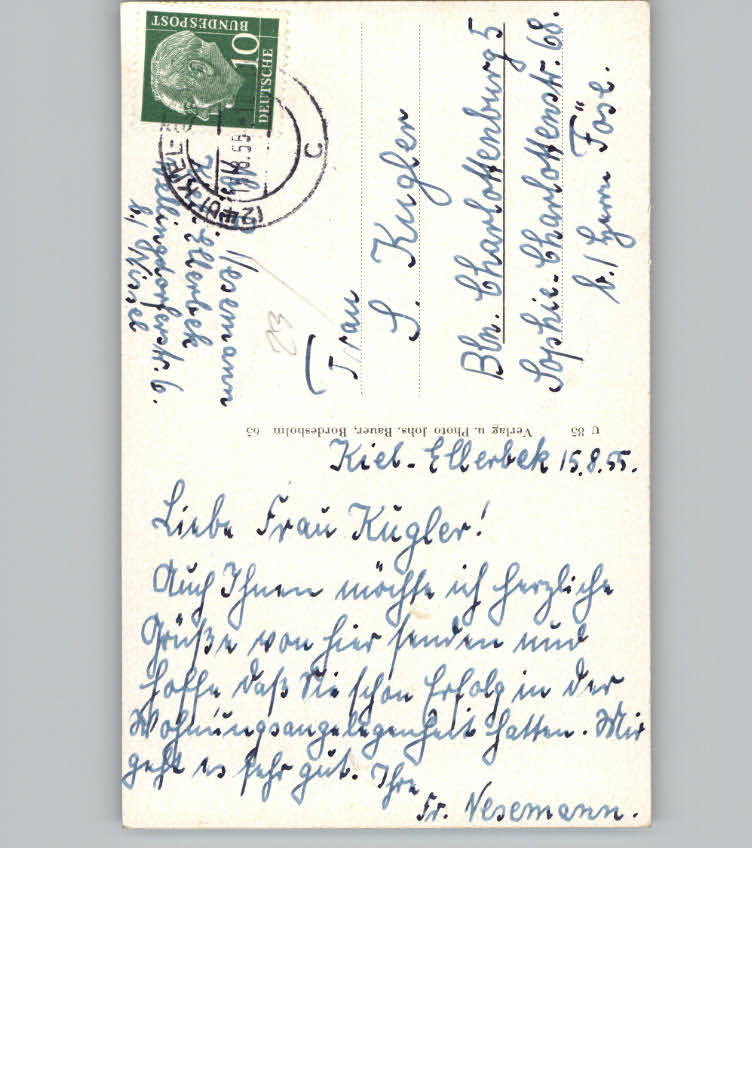 Kiel-Ellerbek 15.8.55.
Liebe Frau Kugler!
Auch Ihnen möchte ich herzliche
Grüße von hier senden und
hoffe daß Sie schon Erfolg in der
Wohnungsangelegenheit hatten. Mir
geht es sehr gut. Ihre
Fr. Nesemann.
U 85 Verlag u. Photo Johs. Bauer, Bordesholm 65
Nesemann
Ellerbek
Wellingdorferstr. 6.
b/ Nissel
DEUTSCHE
BUNDESPOST
10
(24b) KIEL
C
Frau
S. Kugler
Bln. Charlottenburg 5
Sophie-Charlottenstr. 68.
b./ Herrn Föse.